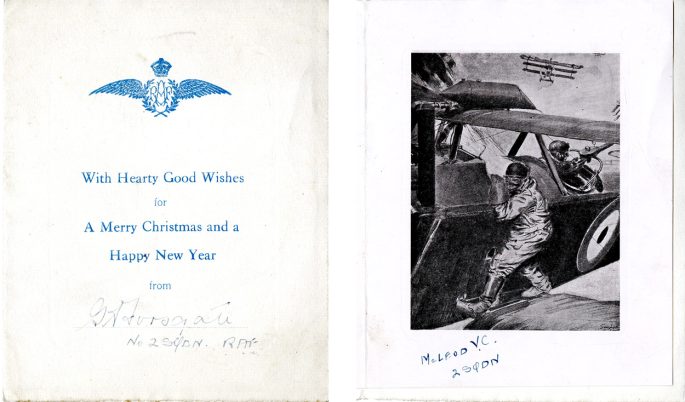 With Hearty Good Wishes
for
A Merry Christmas and a
Happy New Year
from
No 2 SQDN. RAF.
McLEOD V.C.
2 SQDN